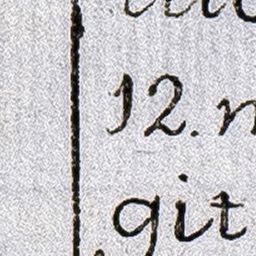 12. n
git